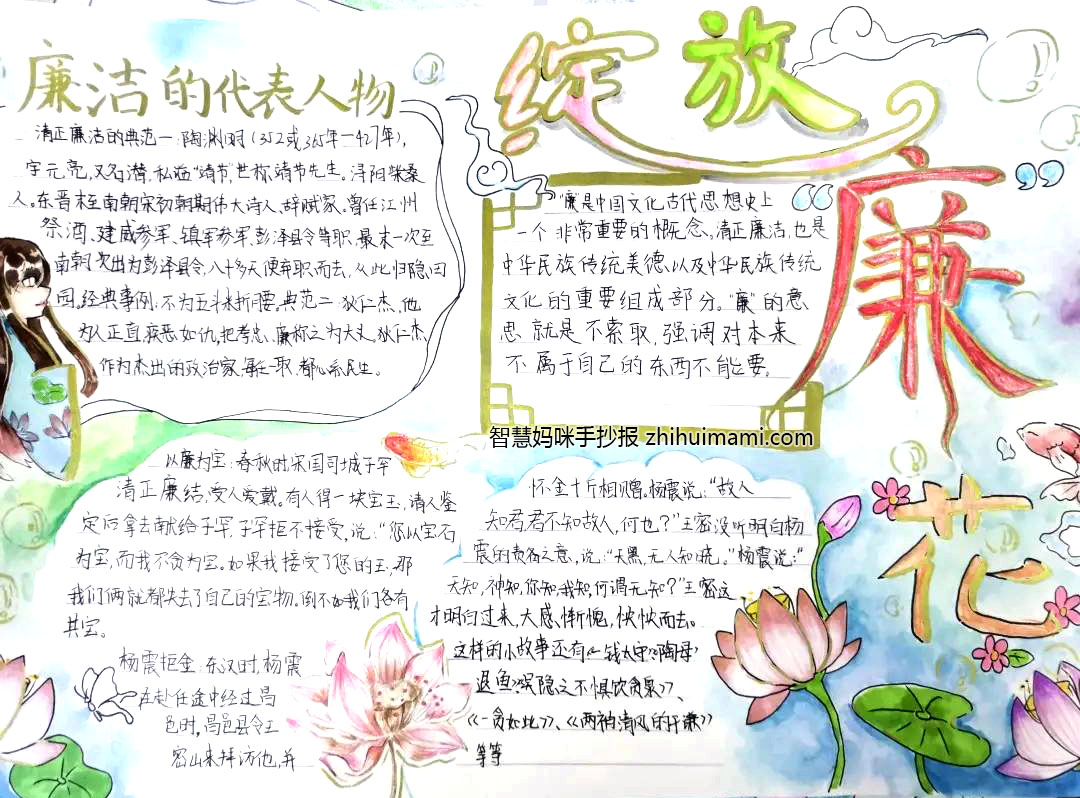 绽放
“廉”花
廉洁的代表人物
清正廉洁的典范一:陶渊明(352或365年一427年),
字元亮,又名潜,私谥“靖节”,世称靖节先生。浔阳柴桑
人。东晋末至南朝宋初朝期伟大诗人、辞赋家。曾任江州
祭酒、建威参军、镇军参军、彭泽县令等职,最末一次至
南朝次出为彭泽县令,八十多天便弃职而去,从此归隐田
园,经典事例:不为五斗米折腰。典范二:狄仁杰,他
为人正直疾恶如仇,把孝忠、廉称之为大义。狄仁杰
作为杰出的政治家,每任一职,都心系民生。
“廉”是中国文化古代思想史上
一个非常重要的概念。清正廉洁,也是
中华民族传统美德,以及中华民族传统
文化的重要组成部分。“廉”的意
思就是不索取,强调对本来
不属于自己的东西不能要。
智慧妈咪手抄报 zhihuimami.com
以廉为宝:春秋时,宋国司城子罕
清正廉结,受人爱戴。有人得一块宝玉,请人鉴
定后拿去献给子罕,子罕拒不接受,说:“您以宝石
为宝,而我不贪为宝。如果我接受了您的玉,那
我们俩就都失去了自己的宝物。倒不如我们各有
其宝。
杨震拒金:东汉时,杨震
在赴任途中经过昌
邑时,昌邑县令王
密山来拜访他,并
怀金十斤相赠。杨震说:“故人
知君君不知故人,何也?”王密没听明白杨
震的责备之意,说:“天黑,无人知晓。”杨震说:“
天知,神知,你知,我知,何谓无知?”王密这
才明白过来,大感惭愧,怏怏而去。
这样的小故事还有《一钱太守》《陶母
退鱼》《吴隐之不惧饮贪泉》、
《一贪如此》、《两袖清风的于谦》
等等